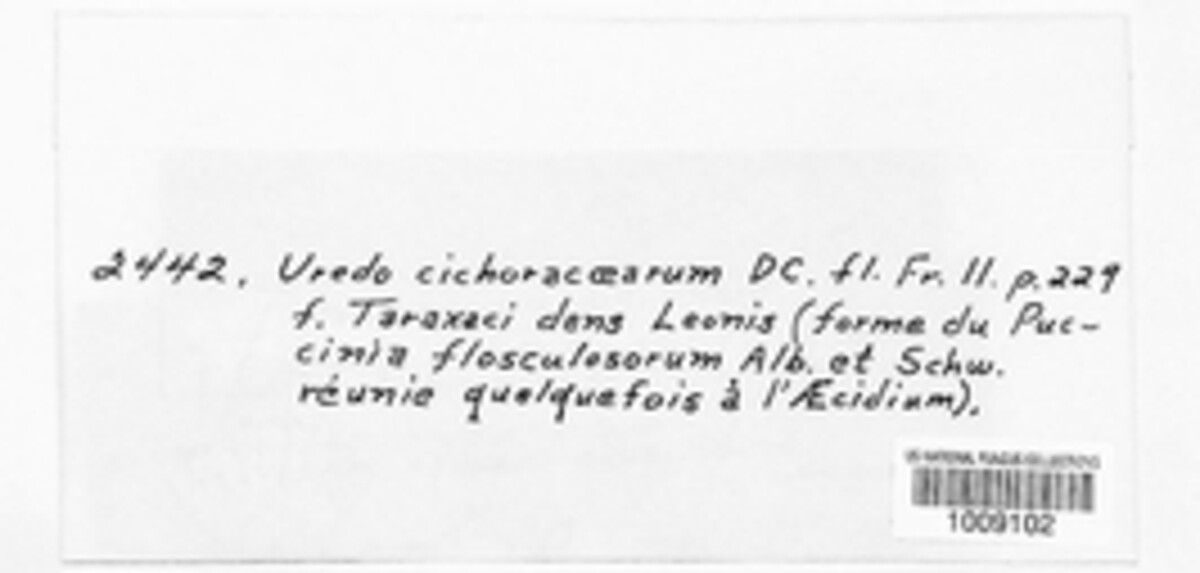 2442. Uredo cichoracœarum DC. fl. Fr. II. p. 229
f. Taraxaci dens Leonis (forme du Puc-
cinia flosculosorum Alb. et Schw.
réunie quelquefois à l'Æcidium).
US NATIONAL FUNGUS COLLECTIONS
1009102